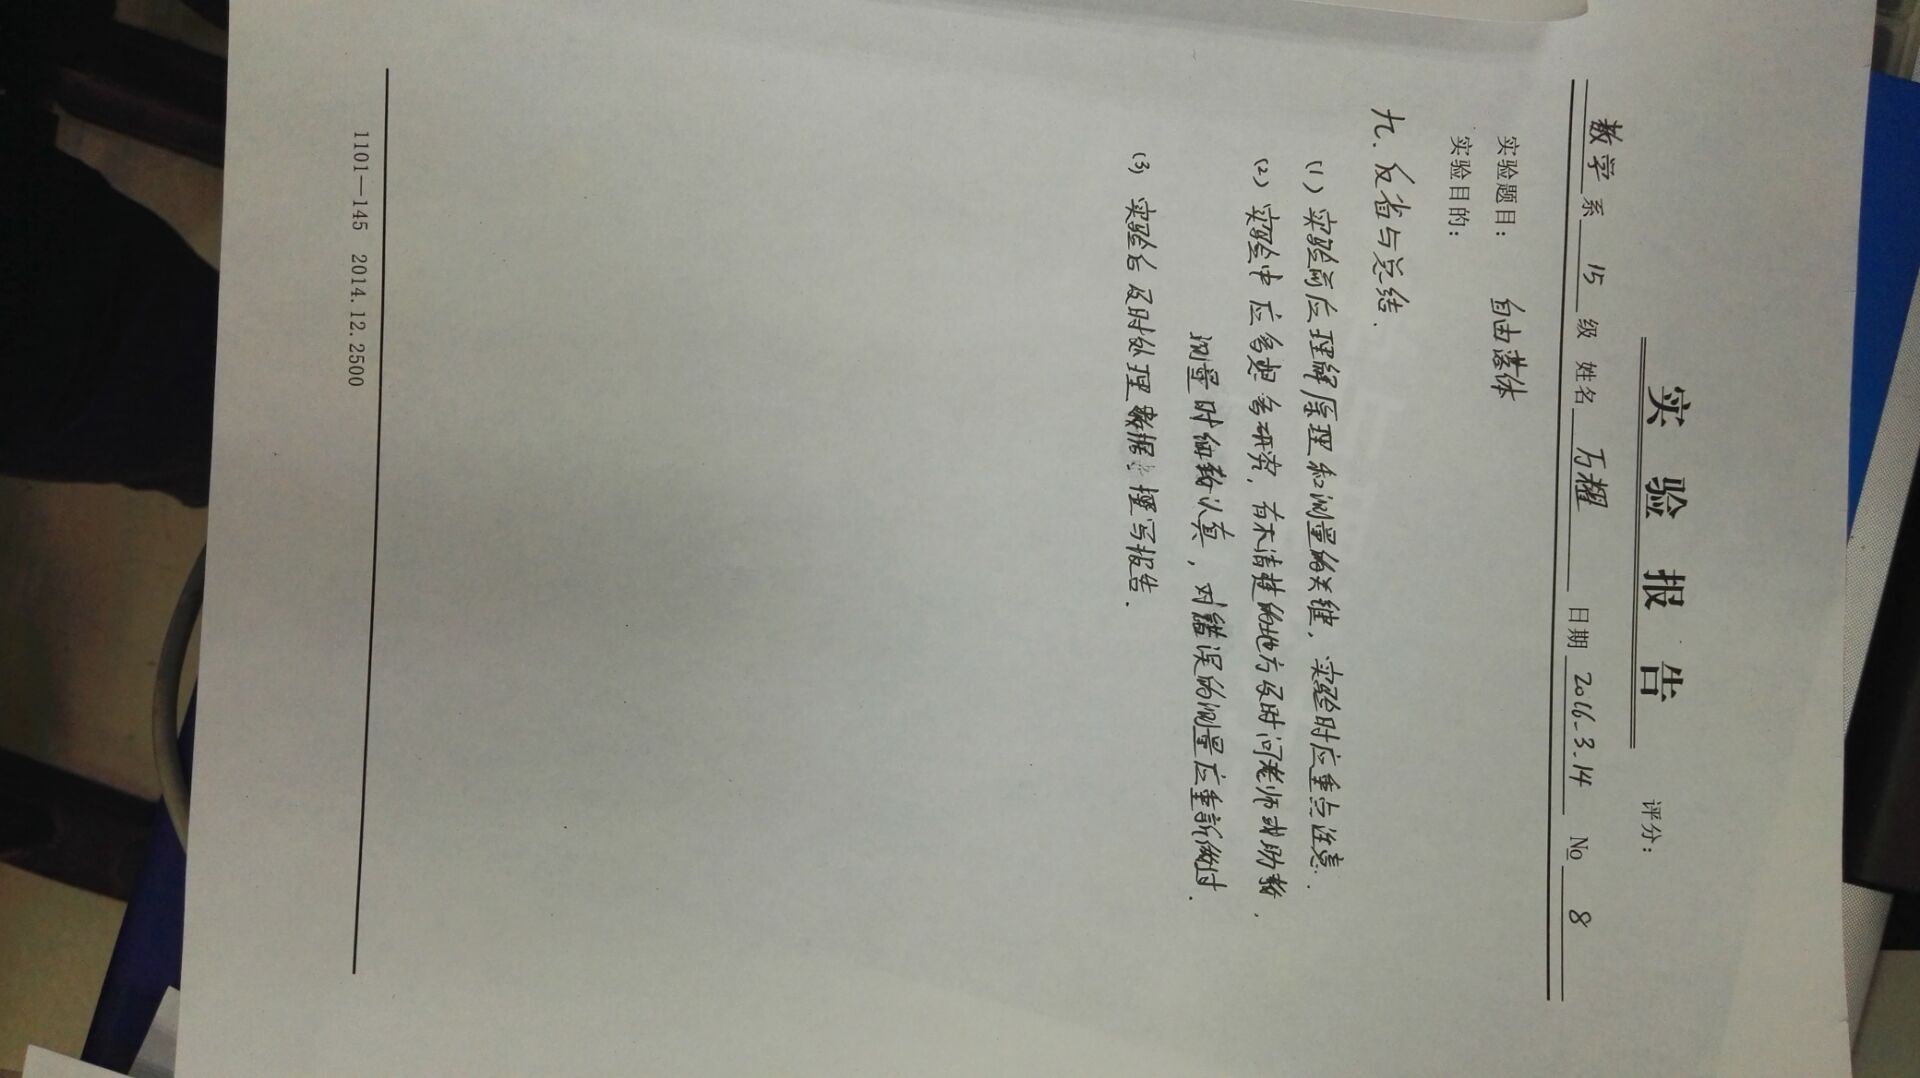 实验报告
评分：
数学系 15 级 姓名 万耀 日期 2016.3.14 No 8
实验题目： 自由落体
实验目的：
九、反省与总结.
(1) 实验前应理解原理和测量的关键，实验时应重点注意.
(2) 实验中应多想多研究，有不清楚的地方及时问老师或助教.
测量时细致认真，对错误的测量应重新做过.
(3) 实验后及时处理数据，撰写报告.
1101—145 2014.12.2500